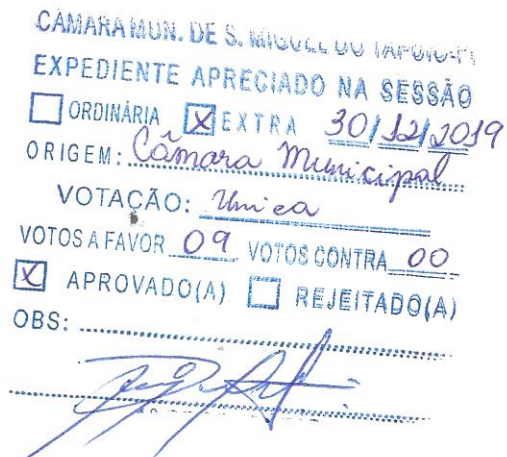 CÂMARA MUN. DE S. MIGUEL DO TAPUIO-PI
EXPEDIENTE APRECIADO NA SESSÃO
ORDINÁRIA X EXTRA 30/12/2019
ORIGEM: Câmara Municipal
VOTAÇÃO: Unica
VOTOS A FAVOR 09 VOTOS CONTRA 00
X APROVADO(A) REJEITADO(A)
OBS: